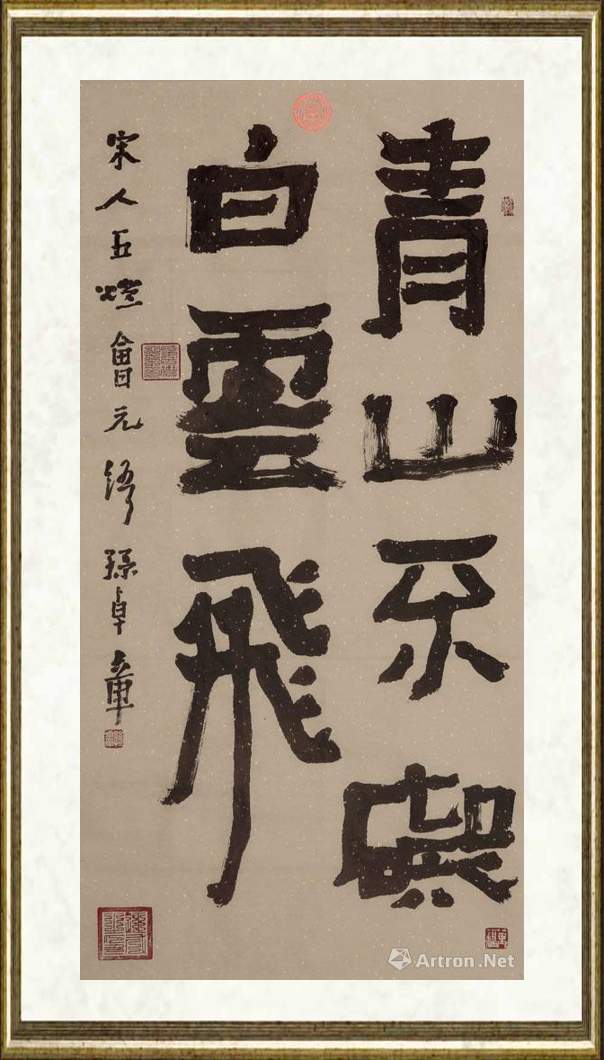 青山不碍
白雲飛
宋人五燈會元語 孫卓章
Artron.Net